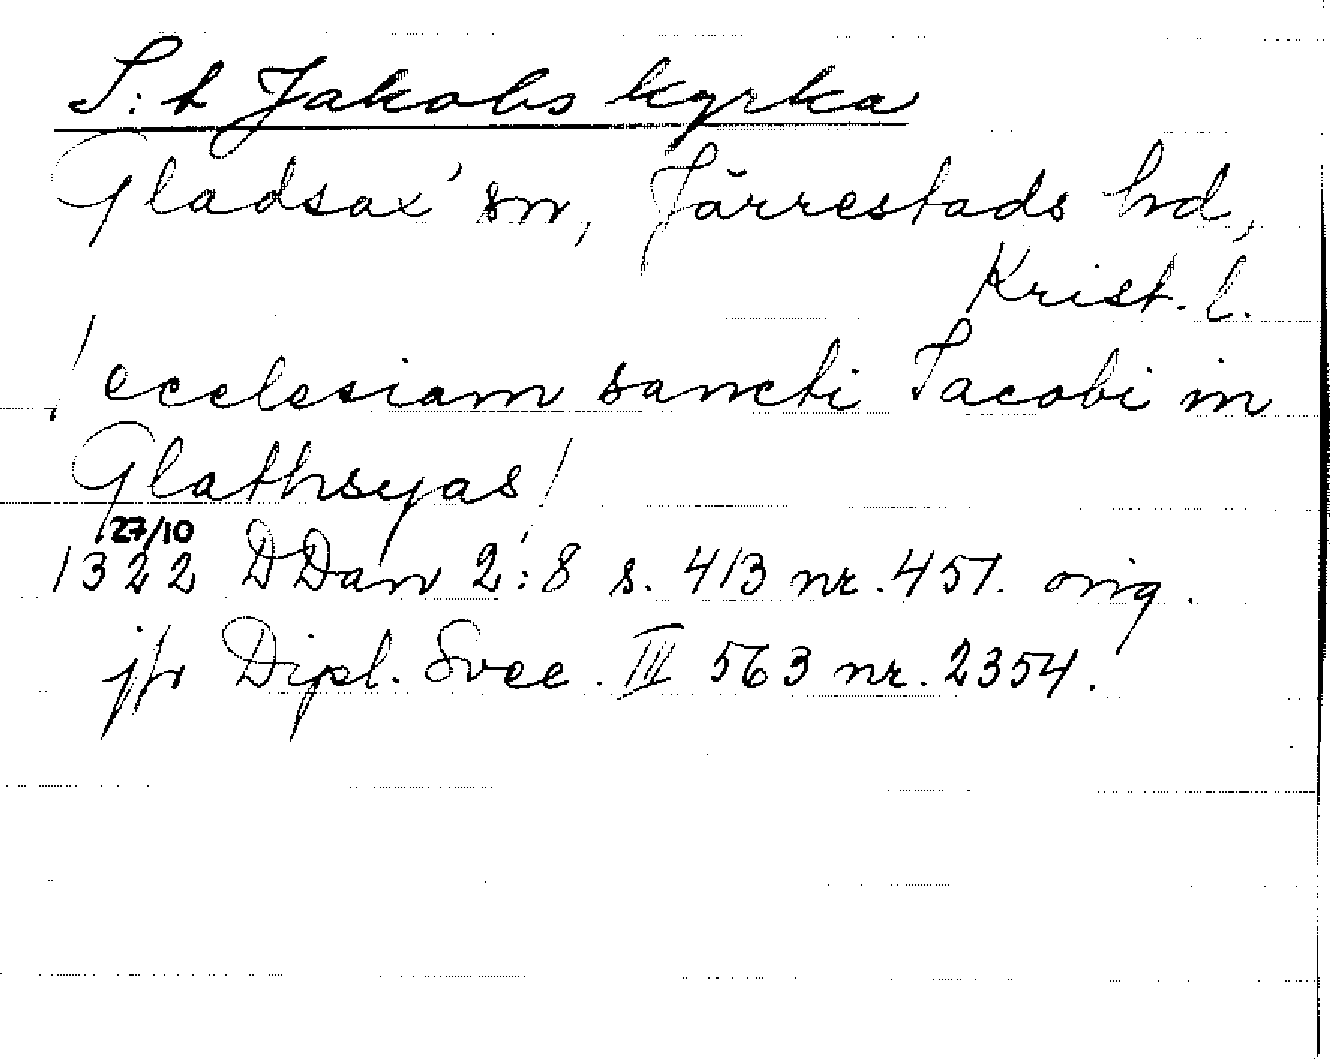 S:t Jakobs kyrka
Gladsax' sn, Järrestads hd,
Krist. l.
! ecclesiam sancti Jacobi in
Glathsyas!
27/10
1322 DDan 2:8 s. 413 nr. 457. orig.
jfr Dipl. Svec. III 563 nr. 2354.